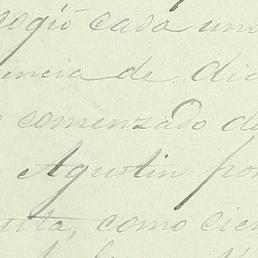 cogió cada uno
incia de dic
comenzado de
Agustin por
uta, como cien